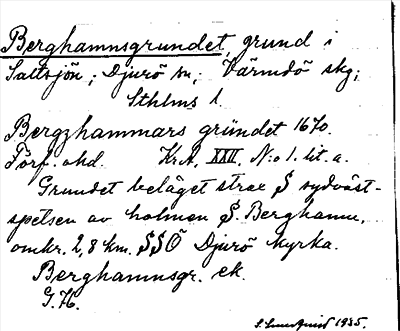 Berghamnsgrundet, grund i
Saltsjön; Djurö sn; Värmdö skg;
Sthlms l.
Bergzhammars gründet 1670.
Förf. okd. Kr.A. XXII, N:o 1. lit. a.
Grundet beläget strax S sydväst-
spetsen av holmen S. Berghamn,
omkr. 2,8 km. SSÖ Djurö kyrka.
Berghamnsgr. ek.
G.H.
1935.